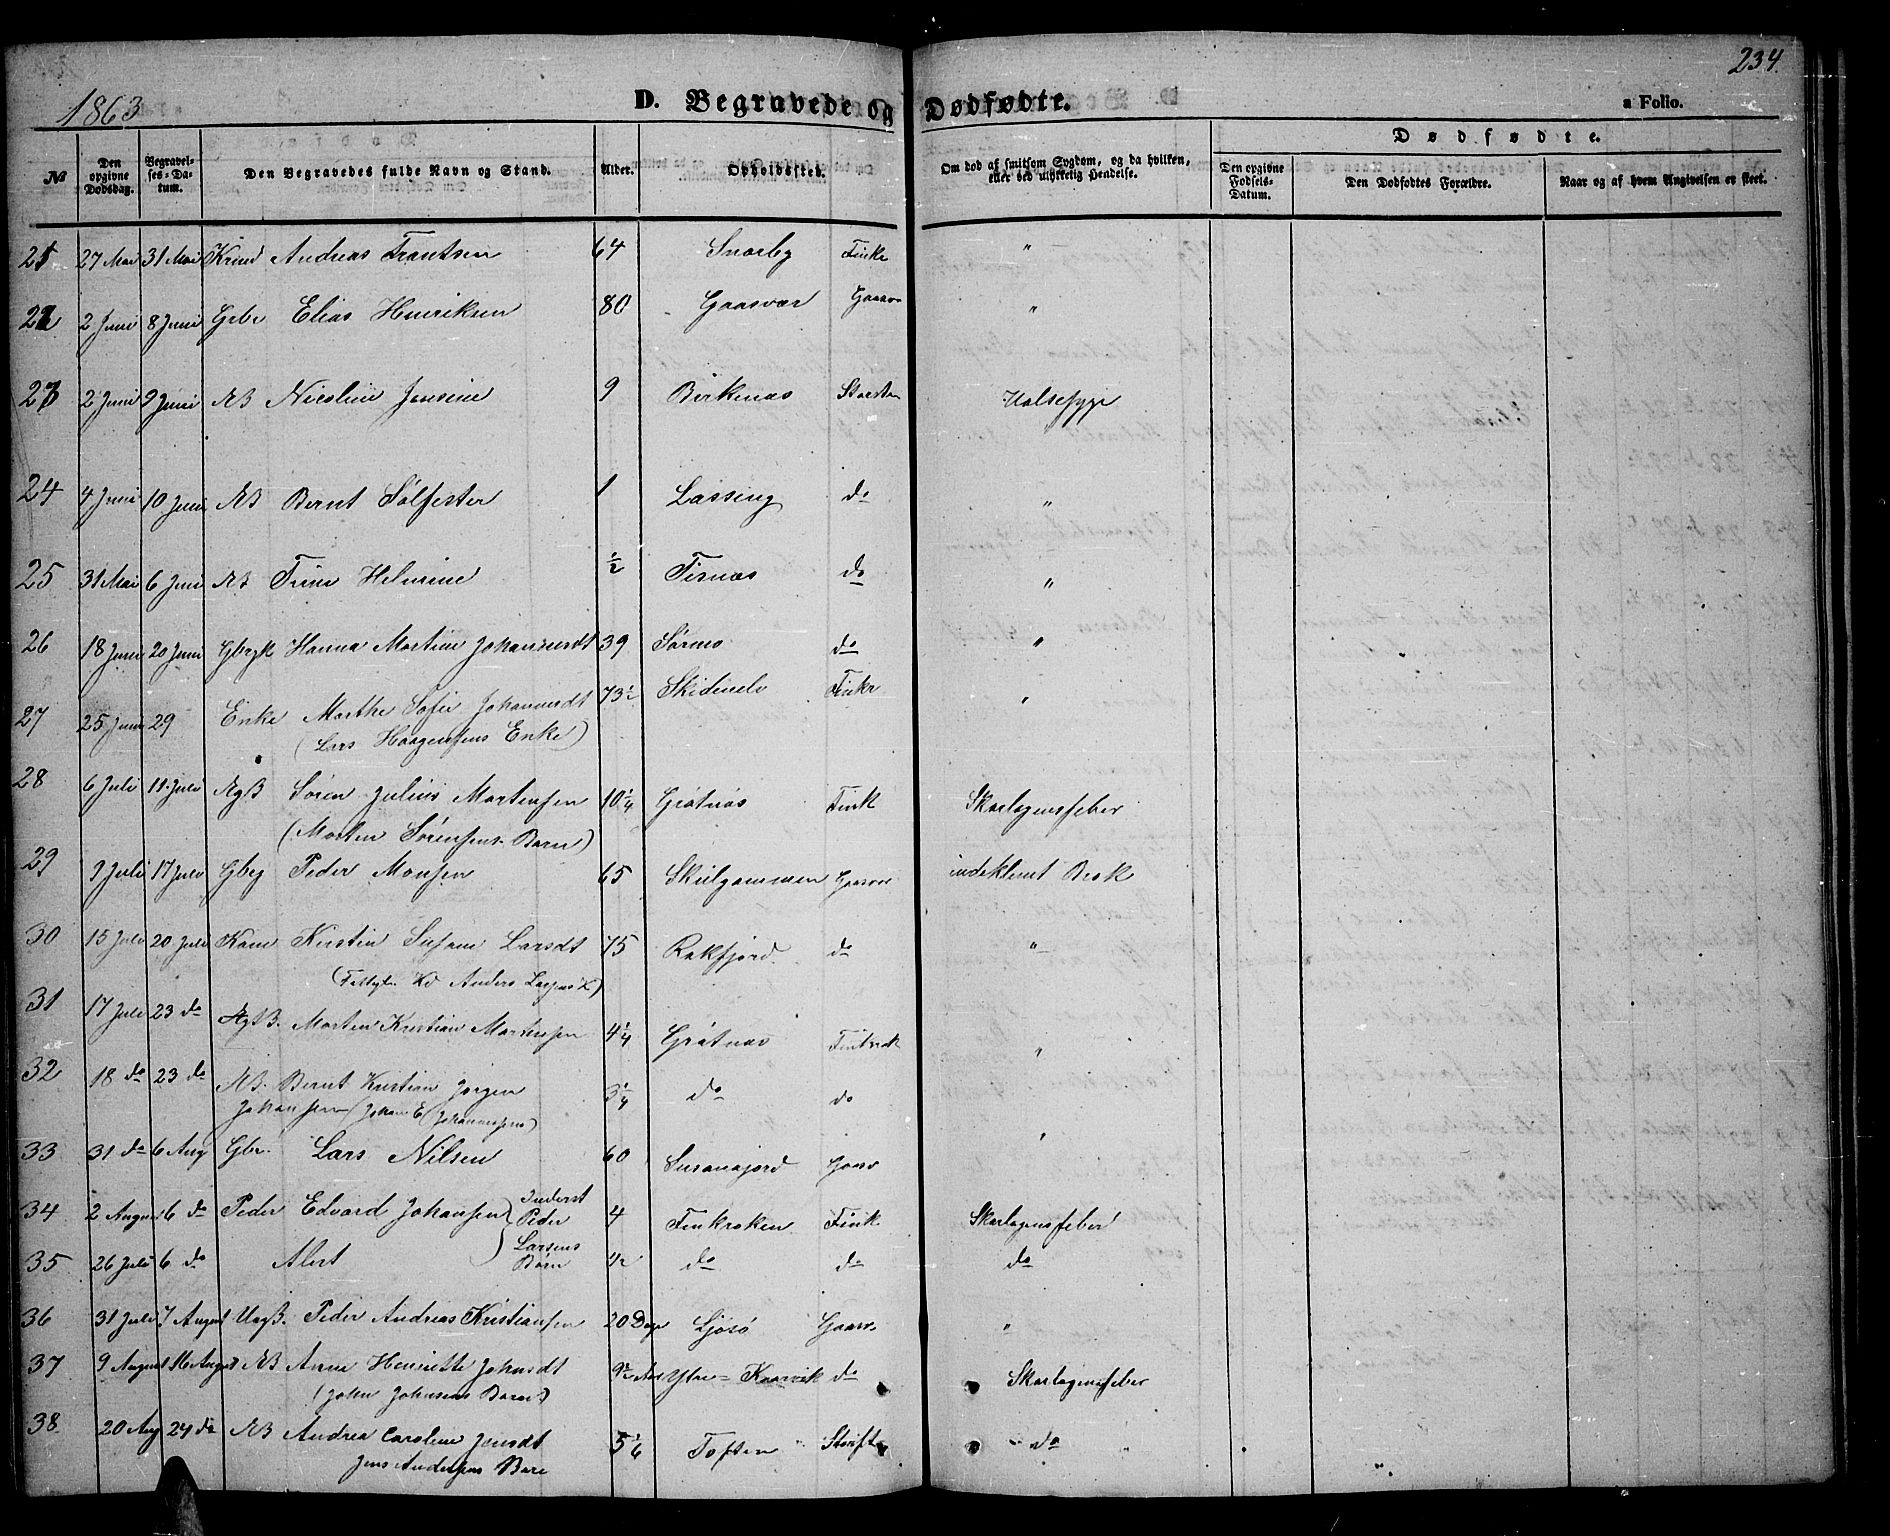 1863
D. Begravede og Dødfødte.
234.
a Folio.
Dødfødte.
No
Den opgivne Dødsdag.
Begravelses-Datum.
Den Begravedes fulde Navn og Stand.
Alder.
Opholdssted.
Om død af smitsom Sygdom, og da hvilken, eller ved ulykkelig Hendelse.
Den opgivne Fødsels-Datum.
Den Dødfødtes Forældre.
Naar og af hvem Angivelsen er skeet.
21 27 Mai 31 Mai Andreas Frantsen 64 Snarby Finkr "
22 2 Juni 8 Juni Gbr Elias Henriksen 80 Gaasvær Gaasv "
23 2 Juni 9 Juni ÆB Nicoline Jensine 9 Birkenæs Storstn Halssyge
24 4 Juni 10 Juni ÆB Bernt Sølfester 1 Lassing do "
25 31 Mai 6 Juni ÆB Trine Helmine ½ Tisnæs do "
26 18 Juni 20 Juni Gbrgk Hanna Martine Johannesdt 39 Sørmo do "
27 25 Juni 29 Enke Marthe Sofie Johannesdt 73½ Skidenelv Finkr "
(Lars Haagensens Enke)
28 6 Juli 11 Juli ÆgB Søren Julius Martensen 10¼ Grøtnæs Fink Skarlagensfeber
(Morten Sørensens Barn)
29 9 Juli 17 Juli Gbrg Peder Monsen 65 Skulgammen Gaasv indeklemt Brok
30 15 Juli 20 Juli Kone Kirstin Susane Larsdt 75 Rakfjord do "
31 17 Juli 23 do ÆgtB. Morten Kristian Martensen 4¼ Grøtnæs Finkrok "
32 18 do 23 do ÆB. Bernt Kristian Jørgen 3¼ do do
Johansen (Johan E Johannesens)
33 31 do 6 Aug Gbr. Lars Nilsen 60 Susanajord Gaasv "
34 2 August 6 do Peder Edvard Johansen 4 Finkroken Fink Skarlagensfeber
Inderst Peder Larsens Børn
35 26 Juli 6 do Albert do do do
36 31 Juli 7 August UægB. Peder Andreas Kristiansen 20 Dage Ljøsø Gaasv "
37 9 August 16 August ÆB Anna Henriette Johnsdt 9½ Aar Ytre=Kaarvik do Skarlagensfeber
(John Johnsens Barn)
38 20 Aug 24 do ÆB Andrea Caroline Jensdt 5 1/6 Toften do
Jens Andersens Barn